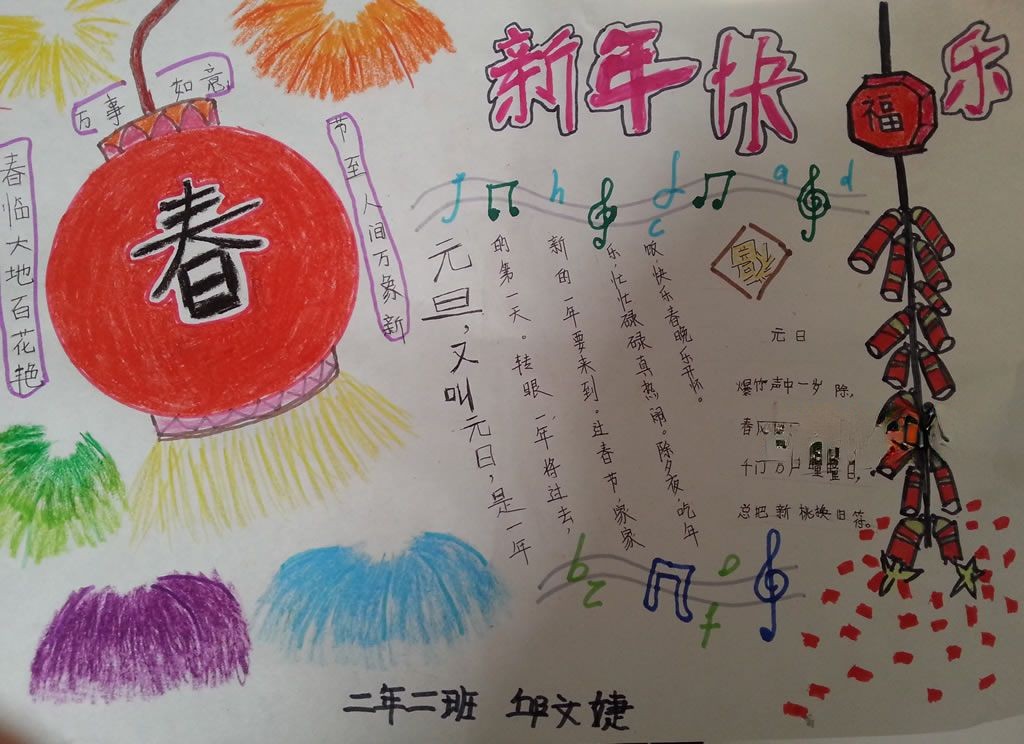 新年快乐
福
万事如意
春
春临大地百花艳
节至人间万象新
元旦,又叫元日,是一年
的第一天。转眼一年将过去,
新的一年要来到。过春节,家家
乐忙忙碌碌真热闹。除夕夜,吃年
饭快乐春晚乐开怀。
福
元日
爆竹声中一岁除,
春风
千门万户曈曈日,
总把新桃换旧符。
二年二班 邱文婕